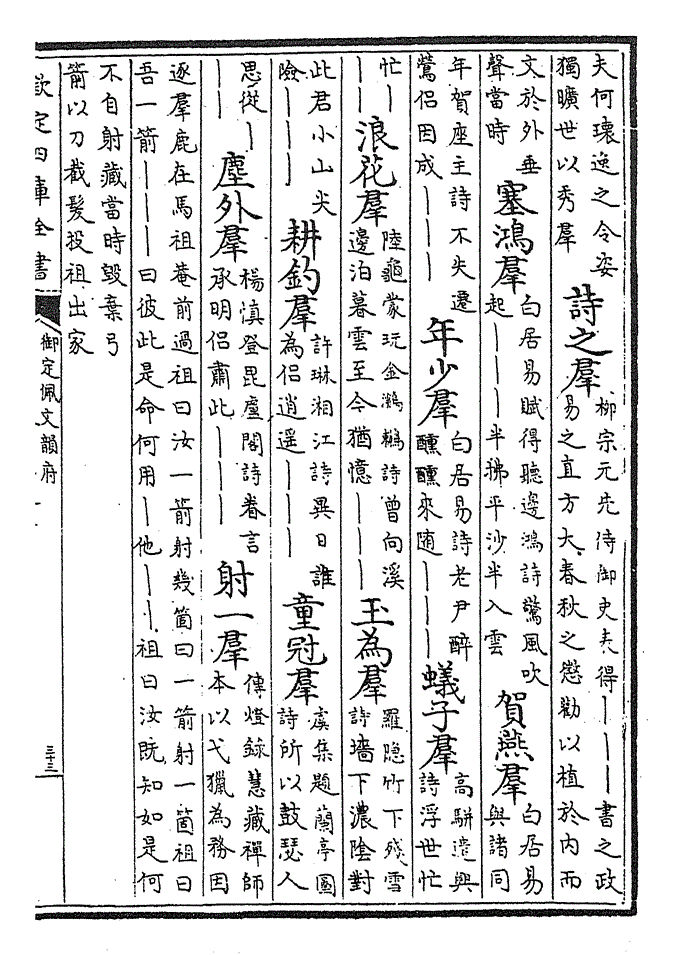 夫何瓌逸之令姿
獨曠世以秀羣
詩之羣
柳宗元先侍御史表得———書之政
易之直方大春秋之懲勸以植於內而
文於外垂
聲當時
塞鴻羣
白居易賦得聽邊鴻詩驚風吹
起———半拂平沙半入雲
賀燕羣
白居易
與諸同
年賀座主詩不失遷
鶯侣因成———
年少羣
白居易詩老尹醉
醺醺來随———
蟻子羣
高駢遣興
詩浮世忙
忙—
——
浪花羣
陸龜蒙玩金鸂鶒詩曾向溪
邊泊暮雲至今猶憶———
玉為羣
羅隐竹下殘雪
詩墻下濃陰對
此君小山尖
險———
耕釣羣
許琳湘江詩異日誰
為侣逍遥———
童冠羣
虞集題蘭亭圖
詩所以鼓瑟人
思從—
——
塵外羣
楊慎登毘盧閣詩眷言
承明侣肅此———
射一羣
傳燈録慧藏禪師
本以弋獵為務因
逐羣鹿在馬祖菴前過祖曰汝一箭射幾箇曰一箭射一箇祖曰
吾一箭———曰彼此是命何用—他——祖曰汝既知如是何
不自射藏當時毁棄弓
箭以刀截髮投祖出家
欽定四庫全書
御定佩文韻府
三十三